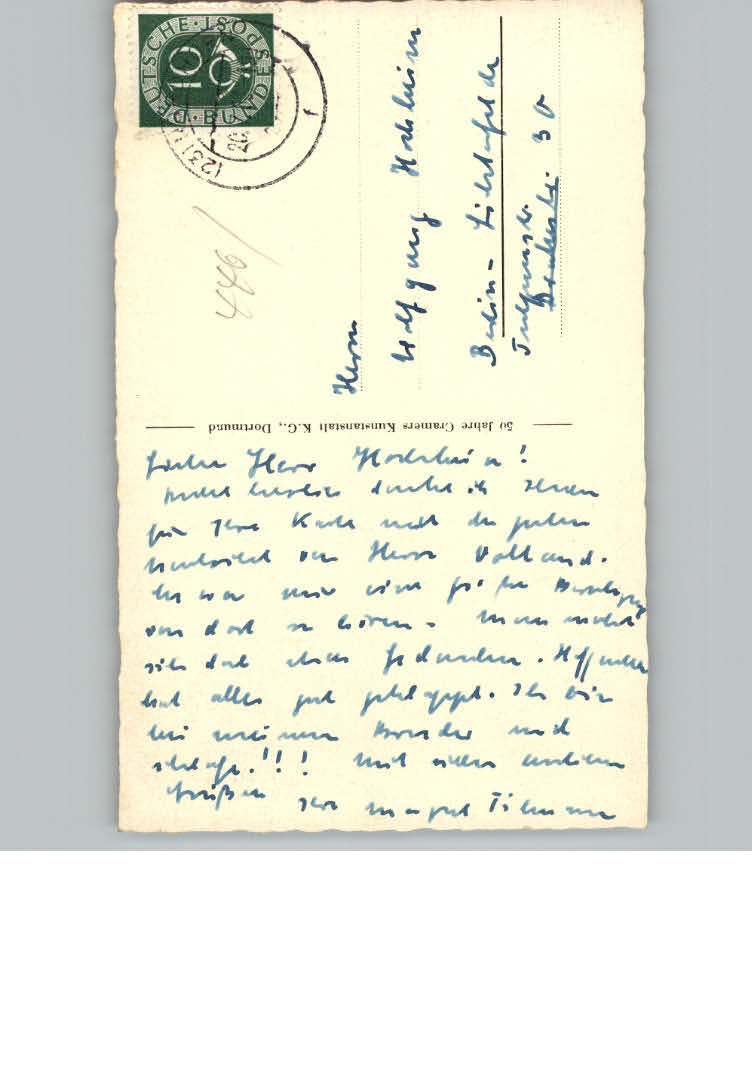 DEUTSCHE BUNDESPOST
10
(23)
20
446/
Herrn
Wolfgang Hochheim
Berlin-Lichterfelde
30
50 Jahre Cramers Kunstanstalt K.G., Dortmund
Lieber Herr Hochheim!
recht herzlich danke ich Ihnen
für Ihre Karte mit der guten
Nachricht von Herrn Volland.
Es war mir eine große Beruhigung
von dort zu hören. Man macht
sich doch etwas Gedanken. Hoffentlich
hat alles gut geklappt. Ich bin
bei meinem Bruder und
schlafe!!! Mit vielen
Grüßen Ihre Margret